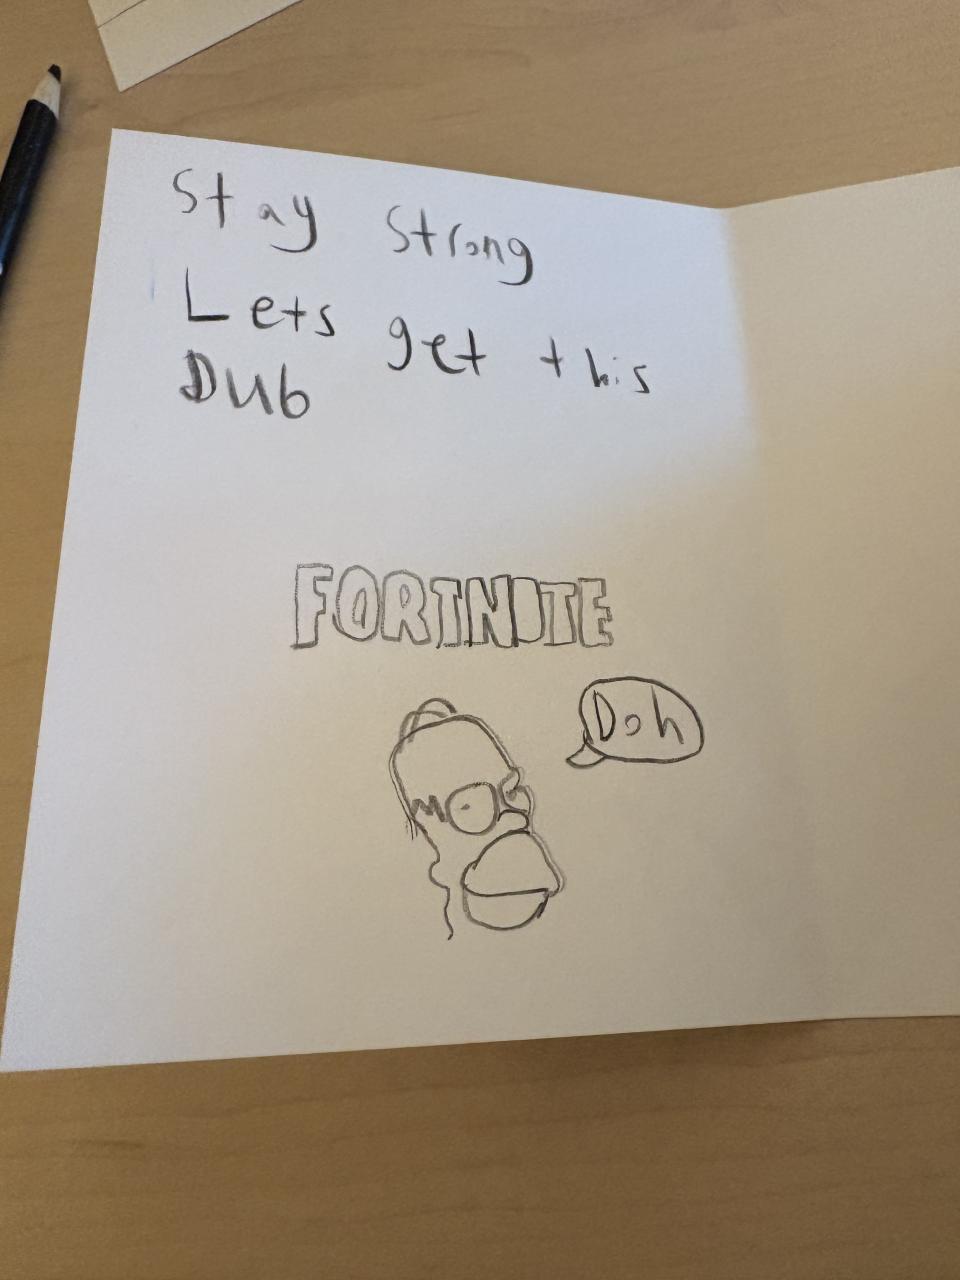 Stay Strong
Lets get this
Dub
FORTNITE
Doh